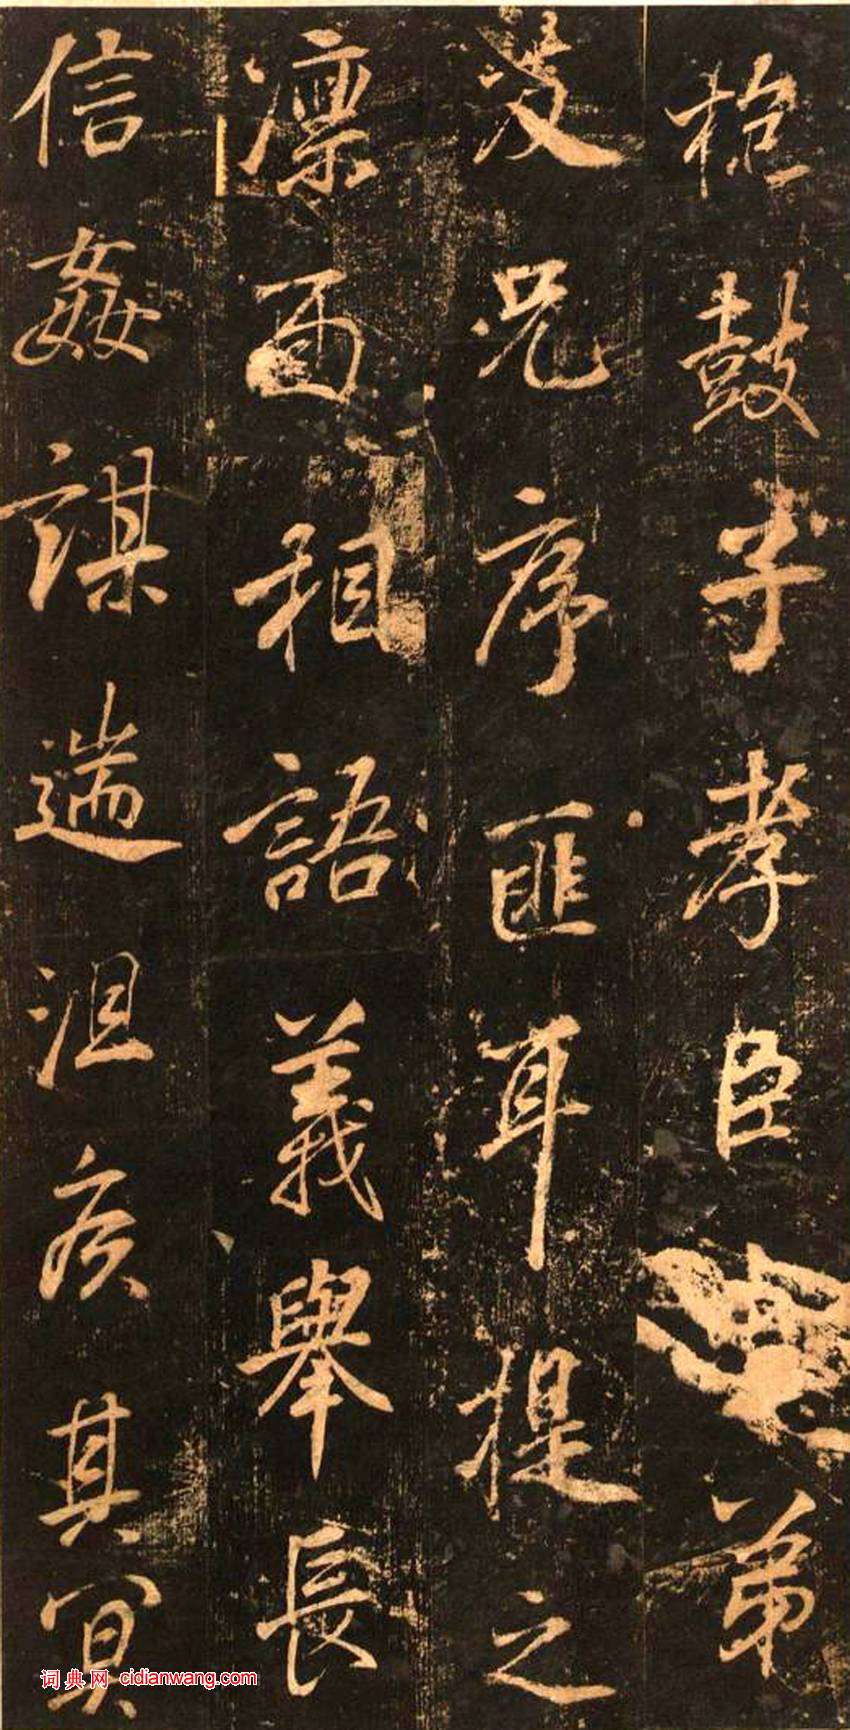 枹鼓子孝臣弟
兄序匪耳提之
凛面相語義舉長
信姦謀遄沮其冥
词典网 cidianwang.com